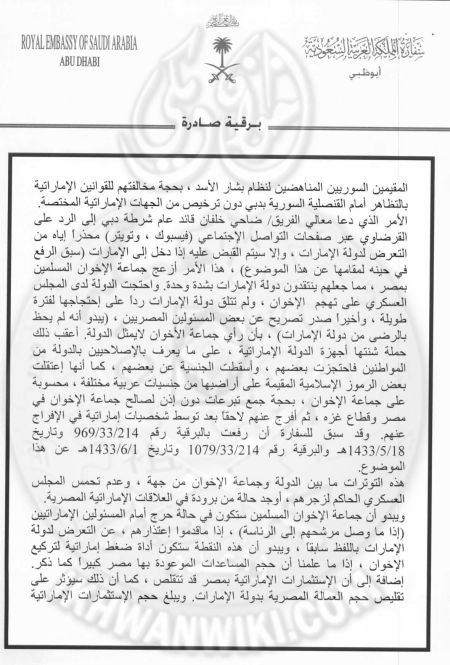 ROYAL EMBASSY OF SAUDI ARABIA
ABU DHABI
سفارة المملكة العربية السعودية
أبوظبي
برقية صادرة
المقيمين السوريين المناهضين لنظام بشار الأسد ، بحجة مخالفتهم للقوانين الإماراتية
بالتظاهر أمام القنصلية السورية بدبي دون ترخيص من الجهات الإماراتية المختصة.
الأمر الذي دعا معالي الفريق/ ضاحي خلفان قائد عام شرطة دبي إلى الرد على
القرضاوي عبر صفحات التواصل الإجتماعي (فيسبوك ، وتويتر) محذراً إياه من
التعرض لدولة الإمارات ، وإلا سيتم القبض عليه إذا دخل إلى الإمارات (سبق الرفع
في حينه لمقامها عن هذا الموضوع) ، هذا الأمر أزعج جماعة الإخوان المسلمين
بمصر ، مما جعلهم ينتقدون دولة الإمارات بشدة وحدة. واحتجت الدولة لدى المجلس
العسكري على تهجم الإخوان ، ولم تتلق دولة الإمارات رداً على إحتجاجها لفترة
طويلة ، وأخيراً صدر تصريح عن بعض المسئولين المصريين ، (يبدو أنه لم يحظ
بالرضى من دولة الإمارات) ، بأن رأي جماعة الأخوان لايمثل الدولة. أعقب ذلك
حملة شنتها أجهزة الدولة الإماراتية ، على ما يعرف بالإصلاحيين بالدولة من
المواطنين فاحتجزت بعضهم ، وأسقطت الجنسية عن بعضهم ، كما أنها إعتقلت
بعض الرموز الإسلامية المقيمة على أراضيها من جنسيات عربية مختلفة ، محسوبة
على جماعة الإخوان ، بحجة جمع تبرعات دون إذن لصالح جماعة الإخوان في
مصر وقطاع غزه ، ثم أفرج عنهم لاحقاً بعد توسط شخصيات إماراتية في الإفراج
عنهم. وقد سبق للسفارة أن رفعت بالبرقية رقم 969/33/214 وتاريخ
1433/5/18هـ والبرقية رقم 1079/33/214 وتاريخ 1433/6/1هـ عن هذا
الموضوع.
هذه التوترات ما بين الدولة وجماعة الإخوان من جهة ، وعدم تحمس المجلس
العسكري الحاكم لزجرهم ، أوجد حالة من برودة في العلاقات الإماراتية المصرية.
ويبدو أن جماعة الإخوان المسلمين ستكون في حالة حرج أمام المسئولين الإماراتيين
(إذا ما وصل مرشحهم إلى الرئاسة) ، إذا ماقدموا إعتذارهم ، عن التعرض لدولة
الإمارات باللفظ سابقاً ، ويبدو أن هذه النقطة ستكون أداة ضغط إماراتية لتركيع
الإخوان ، إذا ما علمنا أن حجم المساعدات الموعودة بها مصر كبيراً كما ذكر.
إضافة إلى أن الإستثمارات الإماراتية بمصر قد تتقلص ، كما أن ذلك سيوثر على
تقليص حجم العمالة المصرية بدولة الإمارات. ويبلغ حجم الإستثمارات الإماراتية
IKHWANWIKI.COM